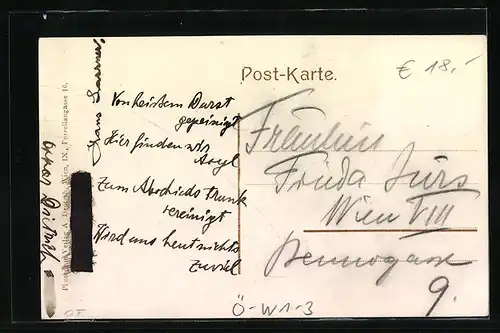 Post-Karte.
€ 18.-
Von heissem Durst
gepeinigt
Hier finden wir
Asyl
Zum Abschieds trunk
vereinigt
Wird uns heut nichts
zuviel
Hans
Fräulein
Frida
Wien VIII
Bennogasse
9.
Wien, IX., Porzellangasse
Ö-W1-3